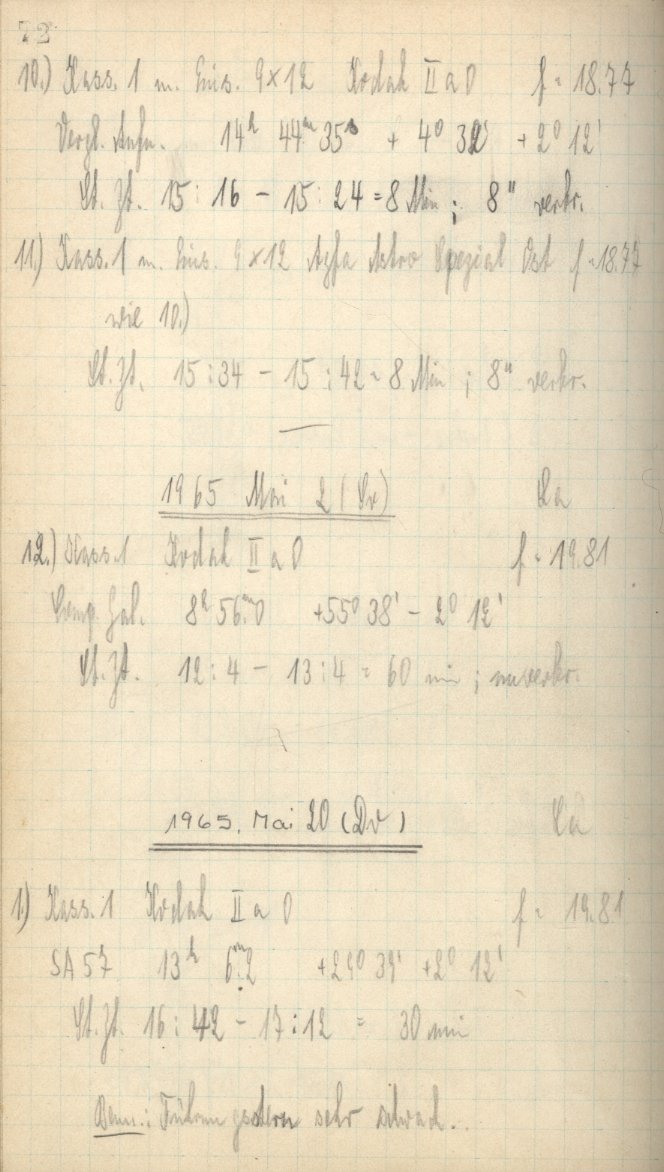 72
10.) Kass. 1 m. Eins. 9x12 Kodak II a O f = 18.77
Vergl. Aufn. 14h 44m 35s + 4° 32' + 2° 12'
St. Zt. 15:16 - 15:24 = 8 Min ; 8" verkr.
11.) Kass. 1 m. Eins. 9x12 Agfa Astro Spezial Ost f = 18.77
wie 10.)
St. Zt. 15:34 - 15:42 = 8 Min ; 8" verkr.
1965 Mai 2
12.) Kass. 1 Kodak II a O f = 19.81
8h 56m.0 +55° 38' - 2° 12'
St. Zt. 12:4 - 13:4 = 60 min ; unverkr.
1965. Mai 20 (Dv)
1.) Kass. 1 Kodak II a O f = 19.81
SA 57 13h 6m.2 +29° 39' +2° 12'
St. Zt. 16:42 - 17:12 = 30 min
Bem.: Führungsstern sehr schwach..